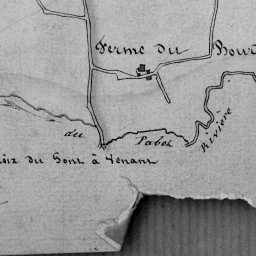 Ferme du Bour
du Sabot
Rivière
oix du Pont à Venant